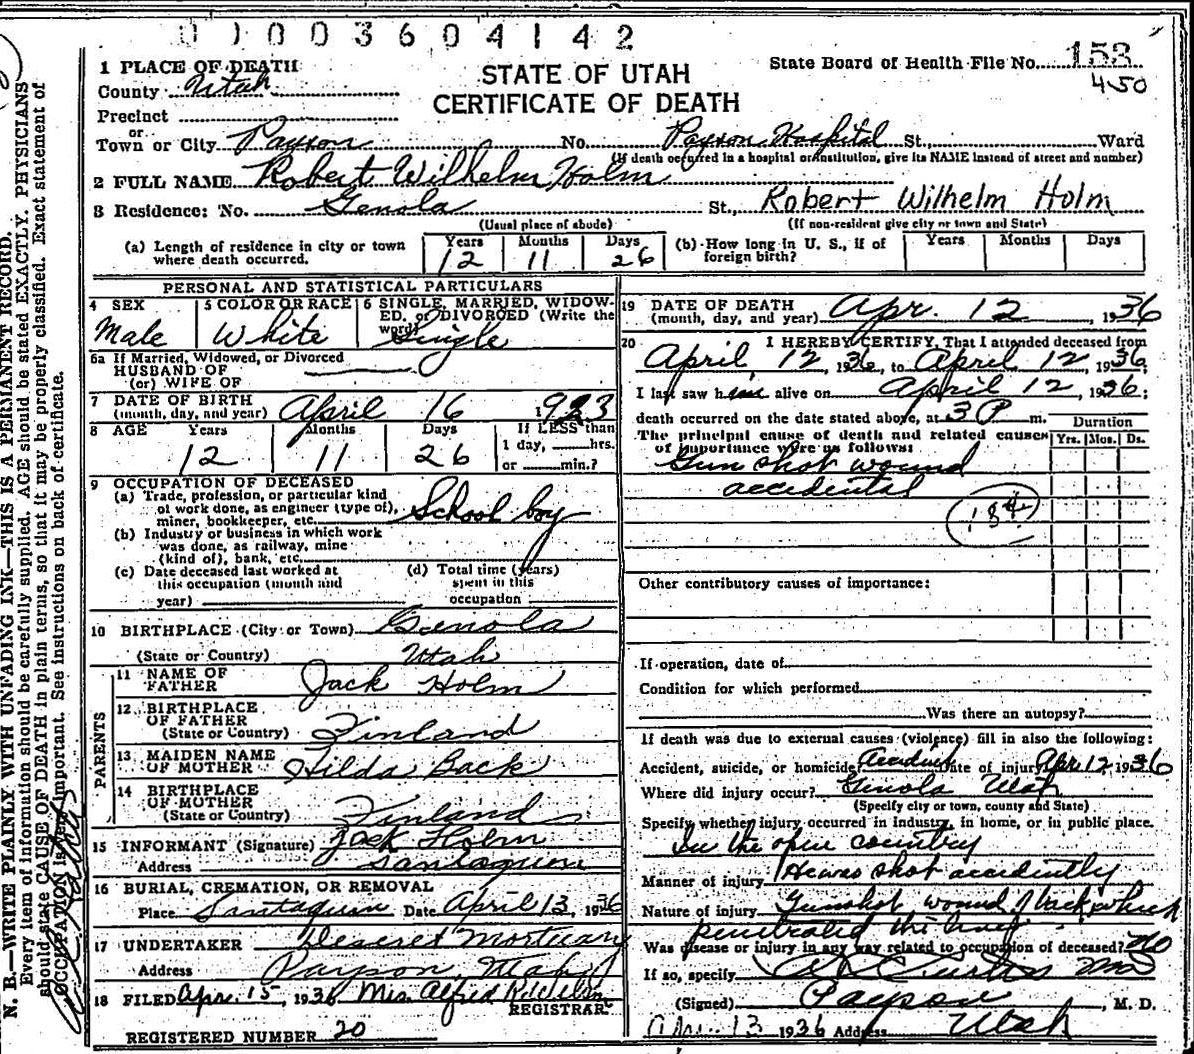 1003604142
STATE OF UTAH
CERTIFICATE OF DEATH
State Board of Health File No. 153
450
1 PLACE OF DEATH
County Utah
Precinct
or
Town or City Payson No. Payson Hospital St., Ward
(If death occurred in a hospital or institution, give its NAME instead of street and number)
2 FULL NAME Robert Wilhelm Holm
3 Residence: No. Genola St., Robert Wilhelm Holm
(Usual place of abode) (If non-resident give city or town and State)
(a) Length of residence in city or town where death occurred. Years 12 Months 11 Days 26 (b) How long in U. S., if of foreign birth? Years Months Days
PERSONAL AND STATISTICAL PARTICULARS
4 SEX Male
5 COLOR OR RACE White
6 SINGLE, MARRIED, WIDOWED, or DIVORCED (Write the word) Single
6a If Married, Widowed, or Divorced
HUSBAND OF
(or) WIFE OF
7 DATE OF BIRTH
(month, day, and year) April 16 1923
8 AGE Years 12 Months 11 Days 26 If LESS than 1 day, hrs. or min.?
9 OCCUPATION OF DECEASED
(a) Trade, profession, or particular kind of work done, as engineer (type of), miner, bookkeeper, etc. School boy
(b) Industry or business in which work was done, as railway, mine (kind of), bank, etc.
(c) Date deceased last worked at this occupation (month and year)
(d) Total time (years) spent in this occupation
10 BIRTHPLACE (City or Town) Genola
(State or Country) Utah
PARENTS
11 NAME OF FATHER Jack Holm
12 BIRTHPLACE OF FATHER
(State or Country) Finland
13 MAIDEN NAME OF MOTHER Hilda Back
14 BIRTHPLACE OF MOTHER
(State or Country) Finland
15 INFORMANT (Signature) Jack Holm
Address Santaquin
16 BURIAL, CREMATION, OR REMOVAL
Place Santaquin Date April 13, 1936
17 UNDERTAKER Deseret Mortuary
Address Payson, Utah
18 FILED Apr. 15, 1936 Mrs. Alfred
REGISTRAR
REGISTERED NUMBER 20
19 DATE OF DEATH
(month, day, and year) Apr. 12, 1936
20 I HEREBY CERTIFY, That I attended deceased from
April 12 1936, to April 12, 1936;
I last saw him alive on April 12, 1936;
death occurred on the date stated above, at 3 P m.
The principal cause of death and related causes of importance were as follows:
Duration
Yrs. Mos. Ds.
Gun shot wound
accidental
184
Other contributory causes of importance:
If operation, date of
Condition for which performed
Was there an autopsy?
If death was due to external causes (violence) fill in also the following:
Accident, suicide, or homicide Accident Date of injury Apr 12, 1936
Where did injury occur? Genola Utah
(Specify city or town, county and State)
Specify whether injury occurred in industry, in home, or in public place.
In the open country
Manner of injury He was shot accidently
Nature of injury Gunshot wound of back which
penetrated the liver
Was disease or injury in any way related to occupation of deceased? No
If so, specify
(Signed) Curtis MD, M. D.
Payson
Apr. 13 1936 Address Utah
N. B.—WRITE PLAINLY WITH UNFADING INK—THIS IS A PERMANENT RECORD.
Every item of information should be carefully supplied. AGE should be stated EXACTLY. PHYSICIANS
should state CAUSE OF DEATH in plain terms, so that it may be properly classified. Exact statement of
OCCUPATION is very important. See instructions on back of certificate.